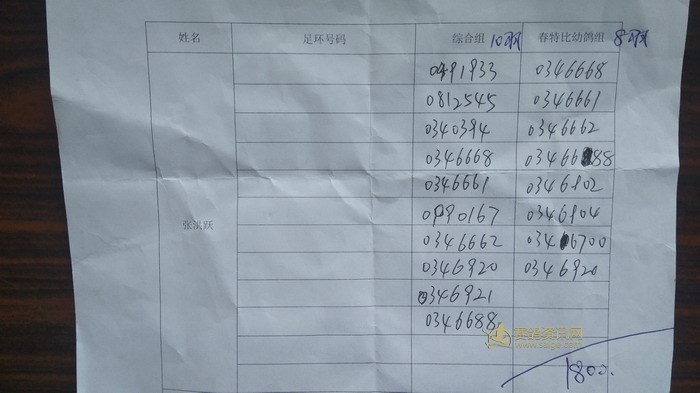 姓名 足环号码 综合组 10羽 春特比幼鸽组 8羽
0491933 0346668
0812545 0346661
0340394 0346662
0346668 0346688
0346661 0346902
张洪跃 0990167 0346904
0346662 0346700
0346920 0346920
0346921
0346688
赛鸽资讯网
www.saige.com
1800.